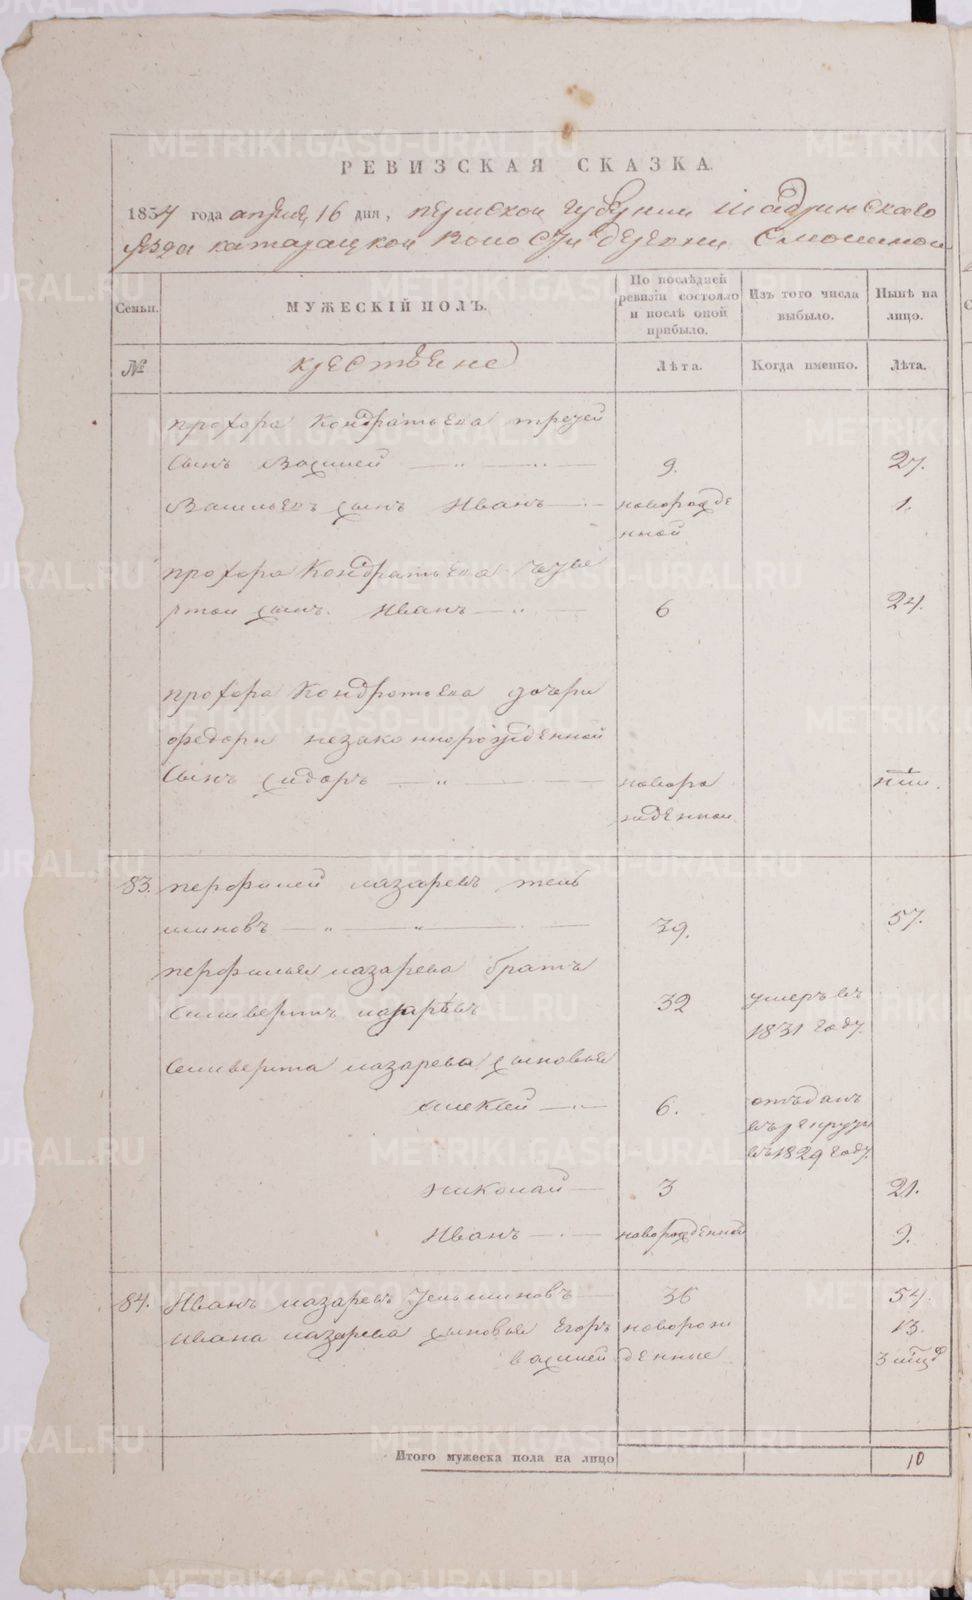 РЕВИЗСКАЯ СКАЗКА.
1834 года апреля 16 дня, пермской губернии Шадринскаго
уезда катарацкой волости деревни Смолиной
Семьи. МУЖЕСКІЙ ПОЛЪ. По послѣдней ревизіи состояло и послѣ оной прибыло. Изъ того числа выбыло. Нынѣ на лицо.
№ крестьяне Лѣта. Когда именно. Лѣта.
прохора Кондратьева третей
сынъ Василей 9. 27.
Васильевъ сынъ Иванъ новорожде 1.
нной
прохора Кондратьева четве
ртой сынъ Иванъ 6 24.
прохора Кондратьева дочери
федоры незаконнорожденной
Сынъ сидоръ новоро
жденной
83. перфилей лазаревъ
шиновъ 39. 57.
перфилья лазарева братъ
Селиверстъ лазаревъ 32 умеръ въ
1831 году.
Селиверста лазарева сыновья
алексей 6. отъданъ
въ рекруты
въ 1829 году.
николай 3 21.
Иванъ новорожденной 9.
84. Иванъ лазаревъ 36 54.
ивана лазарева сыновья Егоръ новорож 13.
василей денные 3
Итого мужеска пола на лицо 10
METRIKI.GASO-URAL.RU